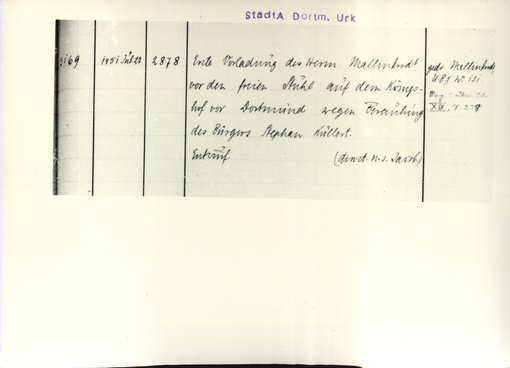 StadtA Dortm. Urk
3169
1451 Juli 28
2878
Erste Vorladung des Herm. Mallinkrodt
vor den freien Stuhl auf dem Königs-
hof vor Dortmund wegen Beraubung
des Bürgers Stephan Küllert.
Entwurf.
(dinst. n. s. Jacob)
gedr. Mallinkrodt,
U.B. I. Nr. 151.
XII, S. 238